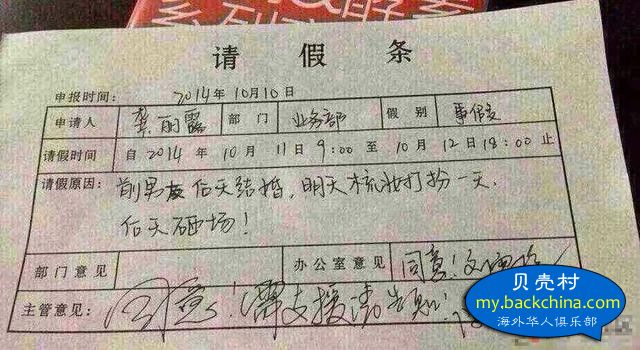 请 假 条
申报时间: 2014年10月10日
申请人 龚丽霞 部门 业务部 假别 事假
请假时间 自 2014 年 10 月 11 日 9:00 至 10 月 12 日 18:00 止
请假原因: 前男友后天结婚,明天梳妆打扮一天,
后天砸场!
部门意见 办公室意见 同意!
主管意见: 同意!需支援请告知!
贝壳村
my.backchina.com
海外华人俱乐部